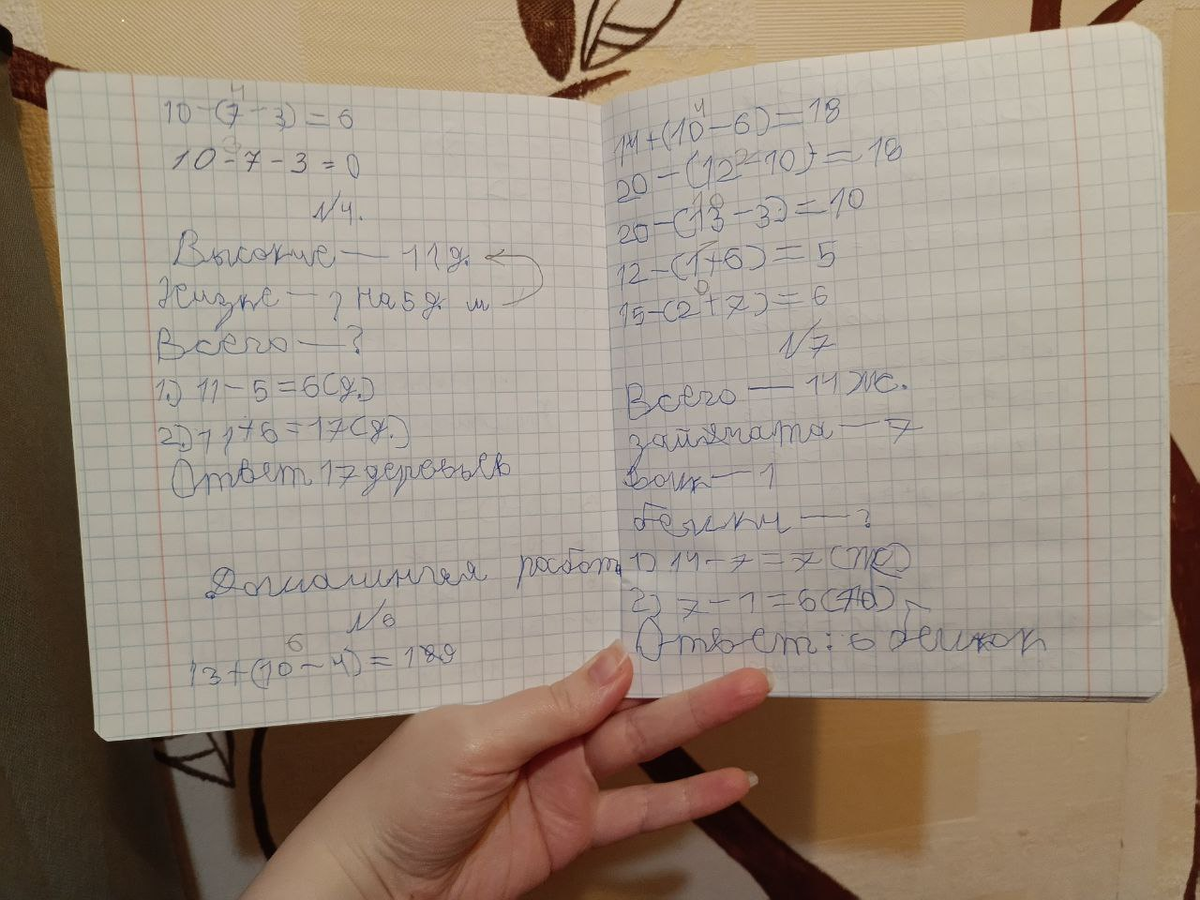 4
10-(7-3)=6
3
10-7-3=0
№4.
Высокие — 11д.
Низкие — ? на 5 д. м
Всего — ?
1) 11-5=6(д.)
2) 11+6=17(д.)
Ответ 17 деревьев
Домашняя работа
№6
6
13+(10-4)=19
4
14+(10-6)=18
2
20-(12-10)=18
10
20-(13-3)=10
7
12-(1+6)=5
9
15-(2+7)=6
№7
Всего — 14 ж.
зайчата — 7
волк — 1
белки — ?
1) 14-7=7(ж)
2) 7-1=6(ж)
Ответ: 6 белкок